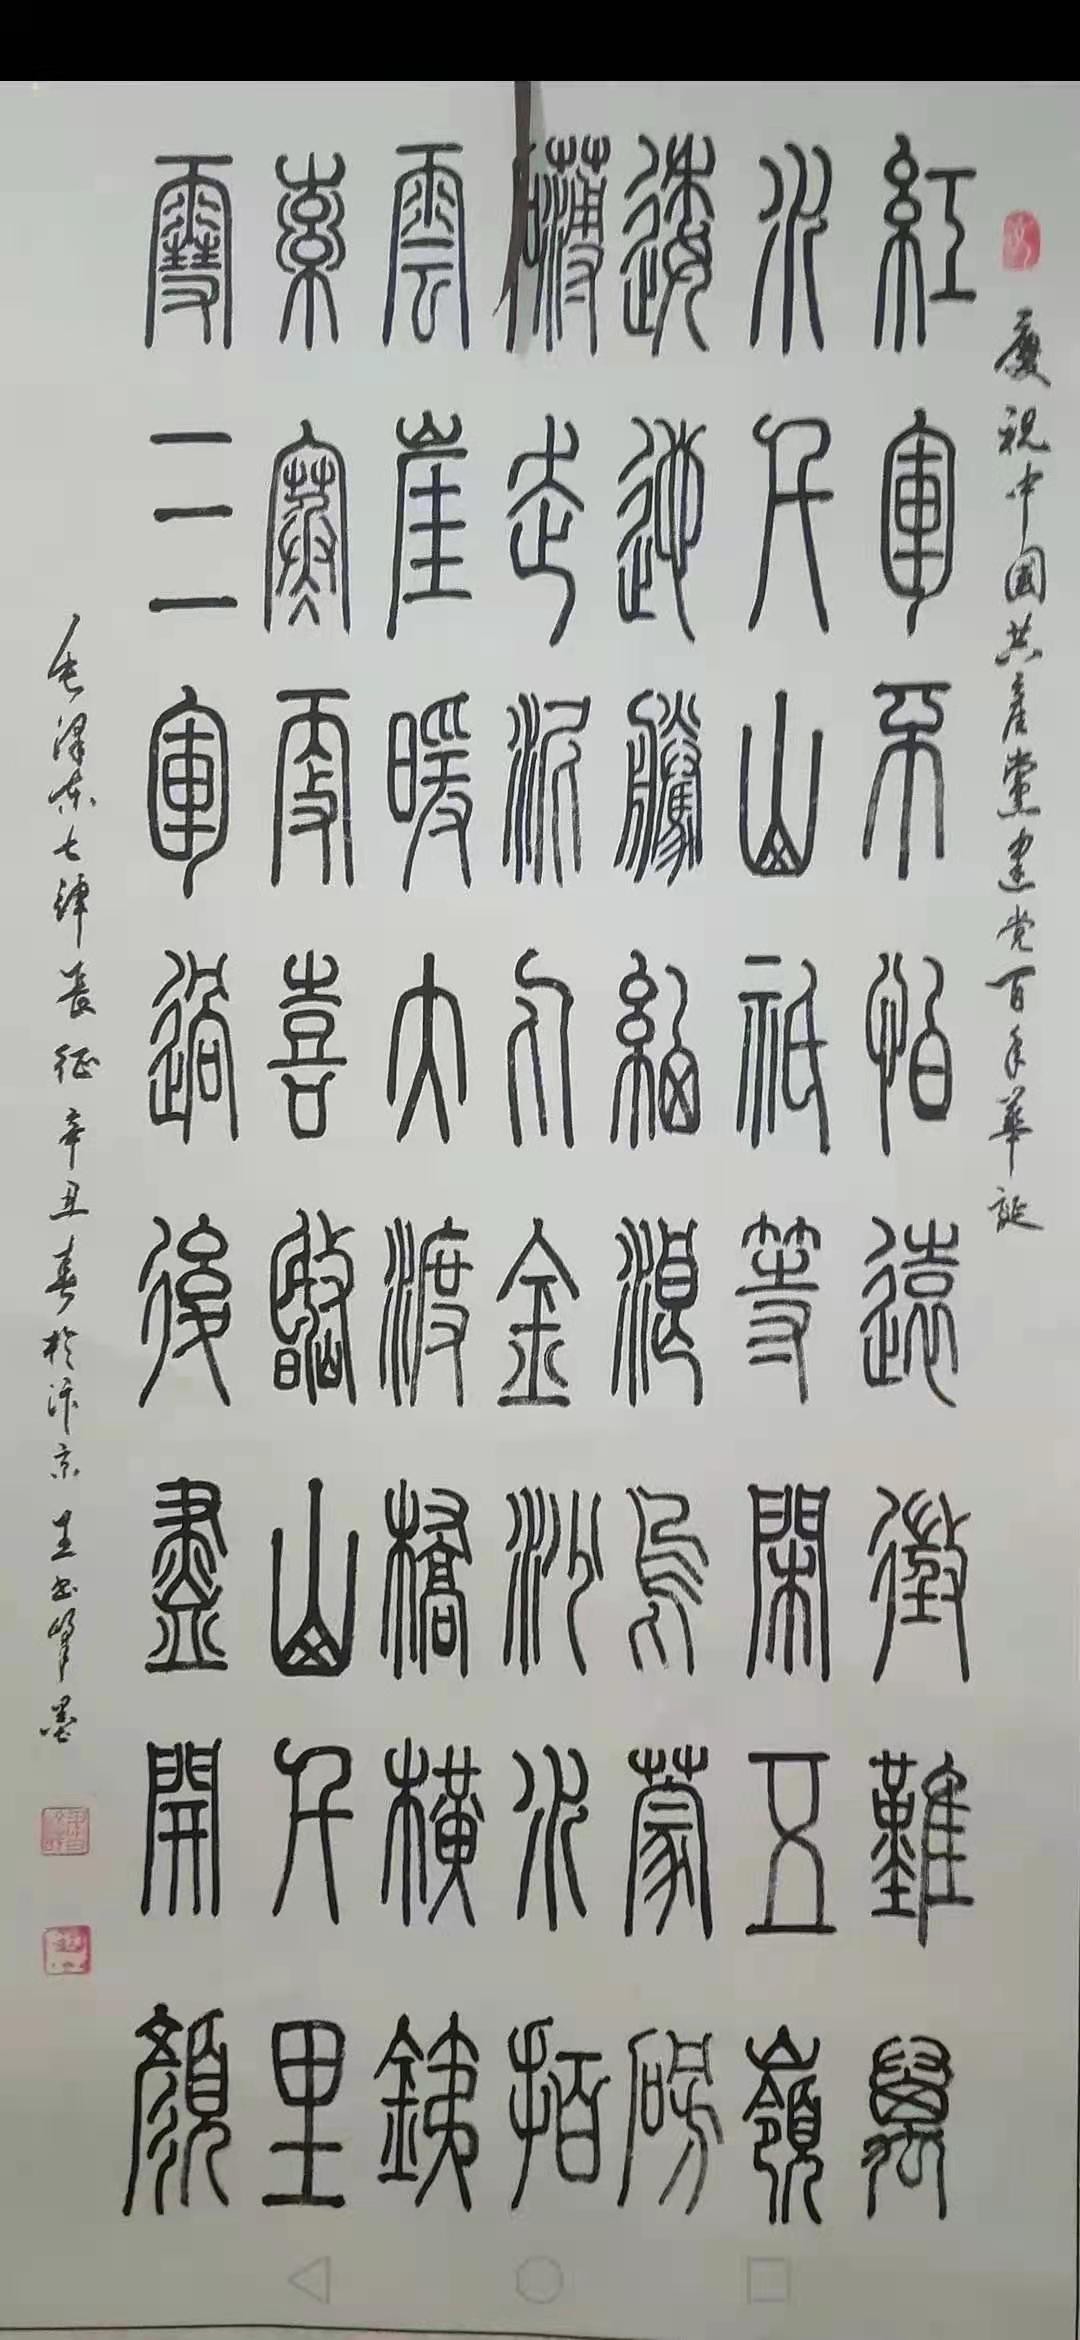 慶祝中國共產黨建党百年華誕
紅軍不怕遠徵難萬
水千山祇等閑五嶺
逶迤騰細浪烏蒙磅
礴走泥丸金沙水拍
雲崖暖大渡橋橫鐵
索寒更喜岷山千里
雪三軍過後盡開顏
毛澤东七律長征辛丑春於汴京王书峰墨